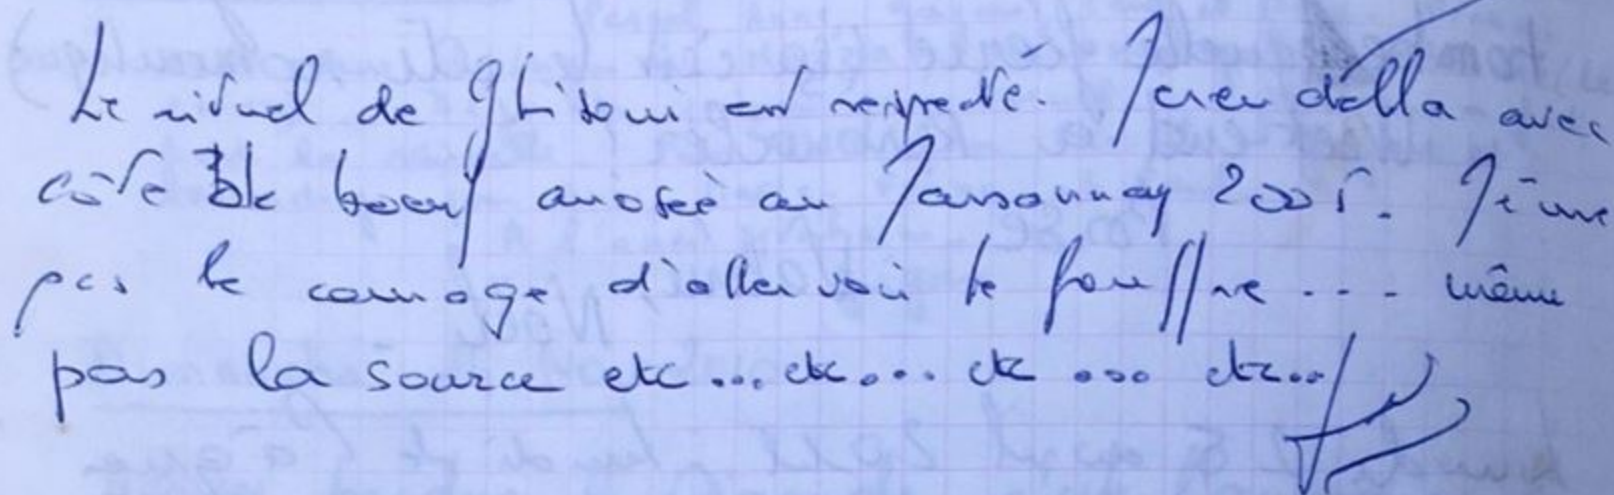 Le rituel de Ghisoni est respecté. avec
côte de boeuf arrosée au Marsannay 2005. même
pas le courage d'aller voir le gouffre ... même
pas la source etc ... etc... etc ... etc...